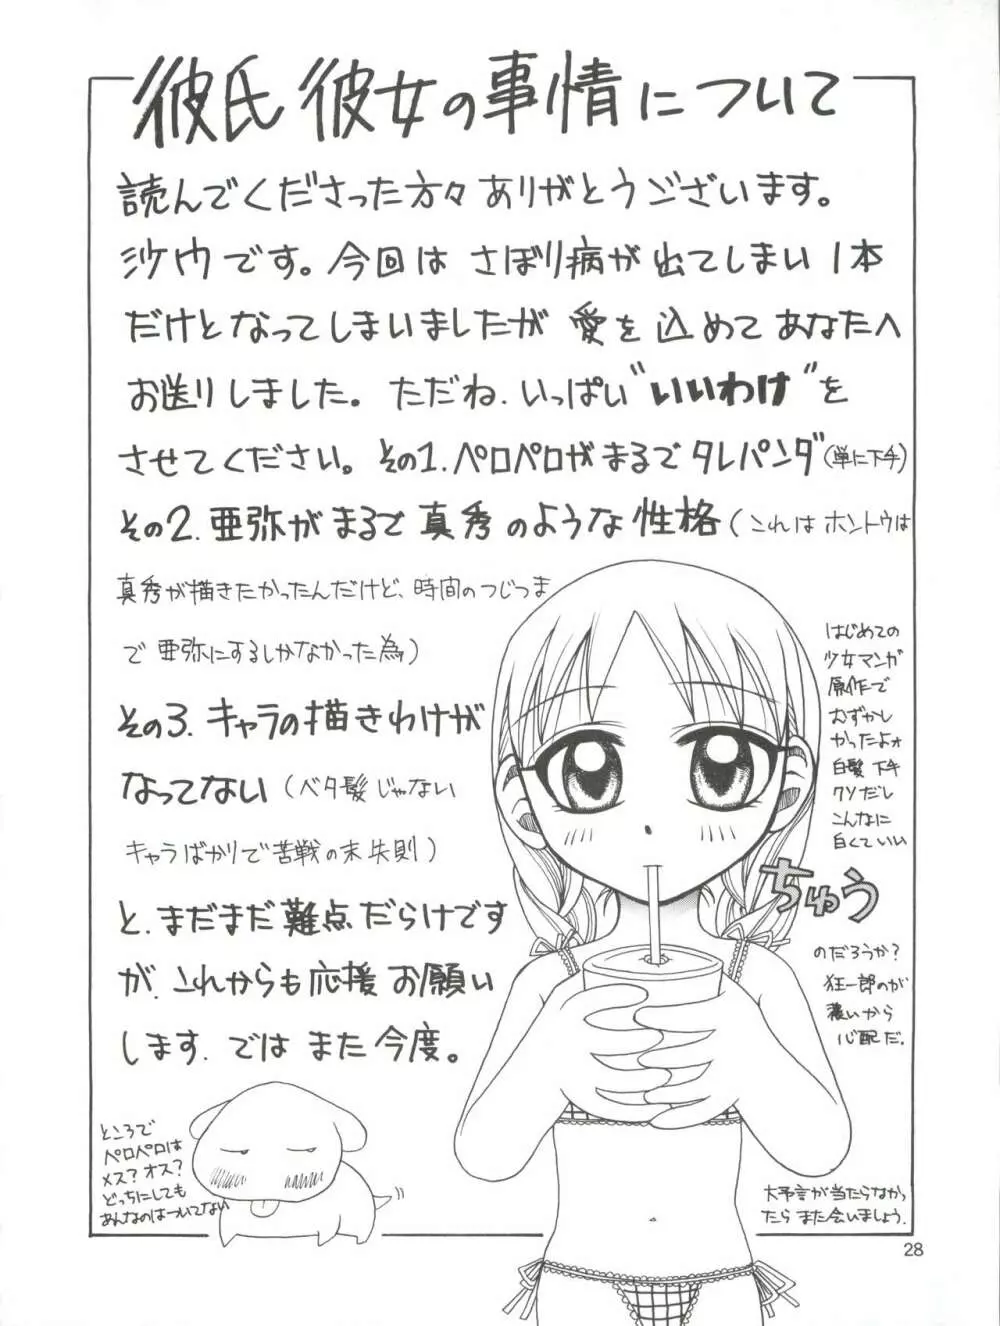 彼氏彼女の事情について
読んでくださった方々ありがとうございます。
沙ケウです。今回はさぼり病が出てしまい1本
だけとなってしまいましたが愛を込めてあなたへ
お送りしました。ただね.いっぱい"いいわけ"を
させてください。その1.ペロペロがまるでタレパンダ(単に下手)
その2.亜弥がまるで真秀のような性格(これはホントウは
真秀が描きたかったんだけど、時間のつじつま
で亜弥にするしかなかった為)
その3.キャラの描きわけが
なってない(ベタ髪じゃない
キャラばかりで苦戦の末失則)
と.まだまだ難点だらけです
が.これからも応援お願い
します.ではまた今度。
はじめての
少女マンガ
原作で
むずかし
かったよォ
白髪下手
クソだし
こんなに
白くていい
のだろうか?
狂一郎のが
濃いから
心配だ.
ちゅう
ところで
ペロペロは
メス?オス?
どっちにしても
あんなのはついてない
大予言が当たらなかっ
たらまた会いましょう.
28